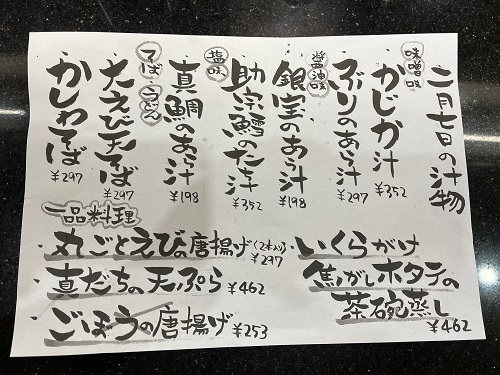 二月七日の汁物
味噌味
かじか汁
¥352
醤油味
ぶりのあら汁
¥297
銀宝のあら汁
¥198
塩味
助宗鱈のたち汁
¥352
真鯛のあら汁
¥198
そば・うどん
大えび天そば
¥297
かしわそば
¥297
一品料理
丸ごとえびの唐揚げ(2本入り)
¥297
真だちの天ぷら ¥462
ごぼうの唐揚げ ¥253
いくらがけ
焦がしホタテの
茶碗蒸し
¥462